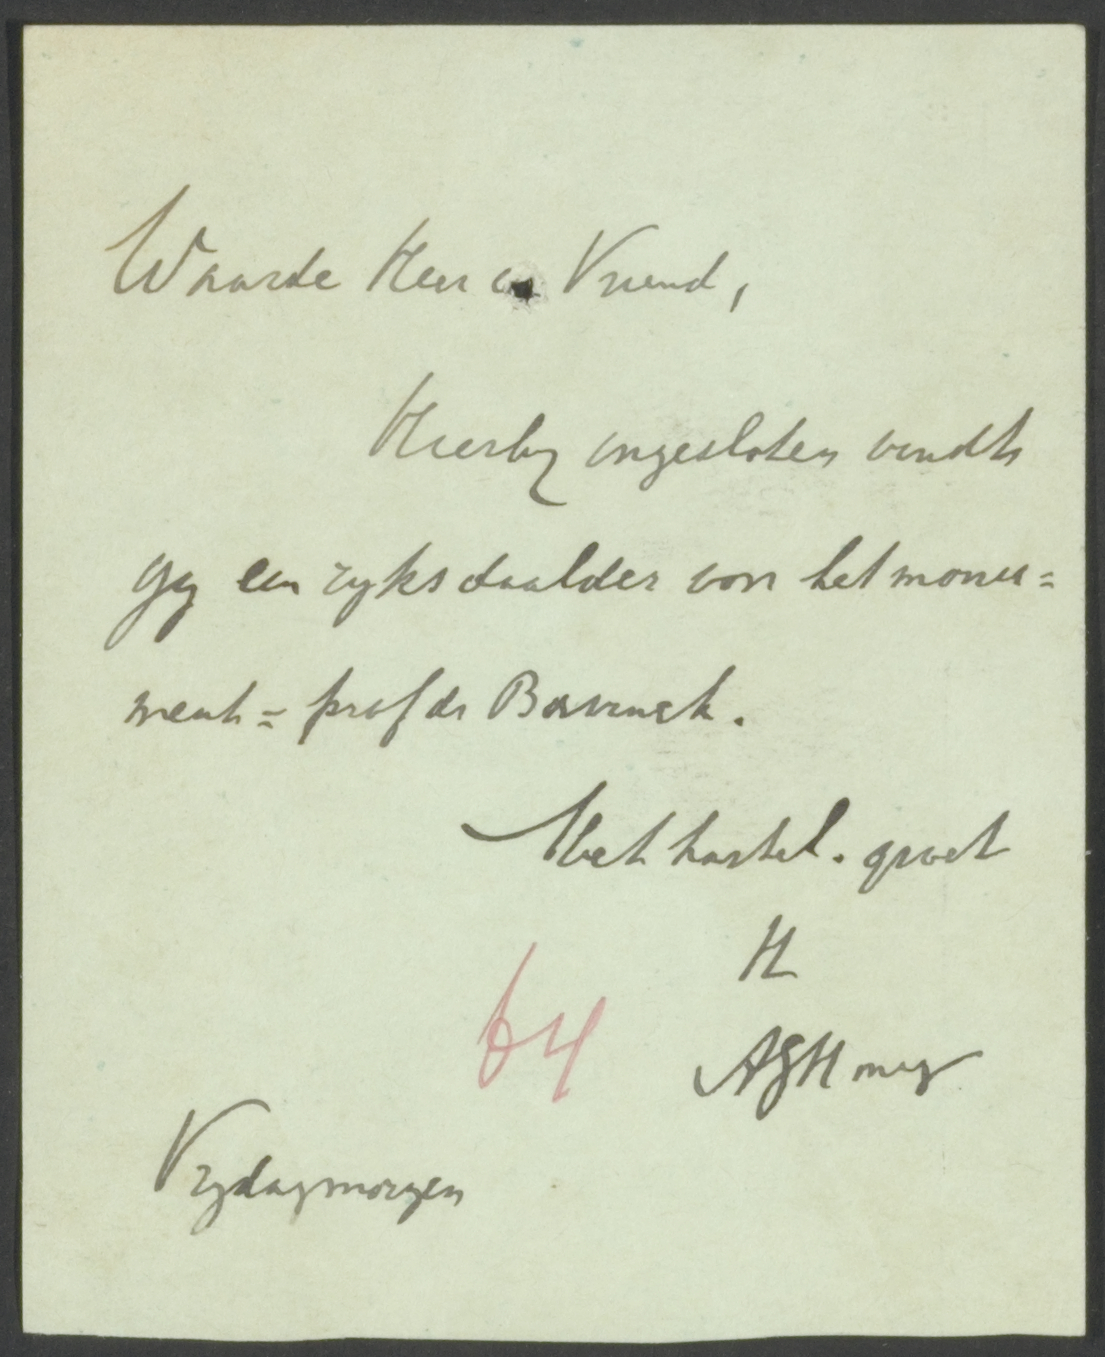 Waarde Heer en Vriend,
Hierby ingesloten vindt
gy een ryksdaalder voor het monu=
ment = prof dr Bavinck.
Met hartel. groet
H
AGHonig
64
Vrydagmorgen